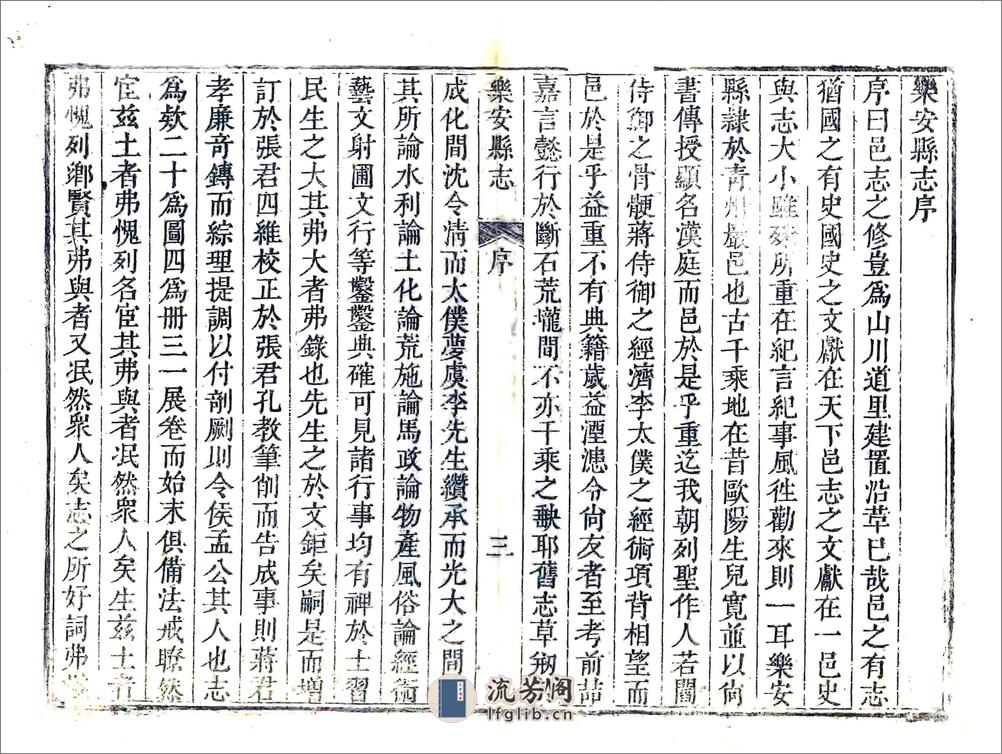 樂安縣志序
序曰邑志之修豈爲山川道里建置沿革已哉邑之有志
猶國之有史國史之文獻在天下邑志之文獻在一邑史
與志大小雖殊所重在紀言紀事風徃勸來則一耳樂安
縣隸於青州嚴邑也古千乘地在昔歐陽生兒寬並以尙
書傳授顯名漢庭而邑於是乎重迄我朝列聖作人若闇
侍御之骨骾蔣侍御之經濟李太僕之經術項背相望而
邑於是乎益重不有典籍歲益湮漶令尙友者至考前喆
嘉言懿行於斷石荒壠間不亦千乘之缺耶舊志草剏
樂安縣志
序
三
成化間沈令清而太僕夢虞李先生纘承而光大之間
其所論水利論土化論荒施論馬政論物產風俗論經術
藝文射圃文行等鑿鑿典確可見諸行事均有裨於士習
民生之大其弗大者弗錄也先生之於文鉅矣嗣是而增
訂於張君四維校正於張君孔教筆削而告成事則蔣君
孝廉竒鏄而綜理提調以付剞劂則令侯孟公其人也志
爲欸二十爲圖四爲冊三一展卷而始末俱備法戒瞭然
宦兹土者弗愧列名宦其弗與者泯然衆人矣生兹土者
弗愧列鄉賢其弗與者又泯然衆人矣志之所好詞弗
流芳閣
lfglib.cn